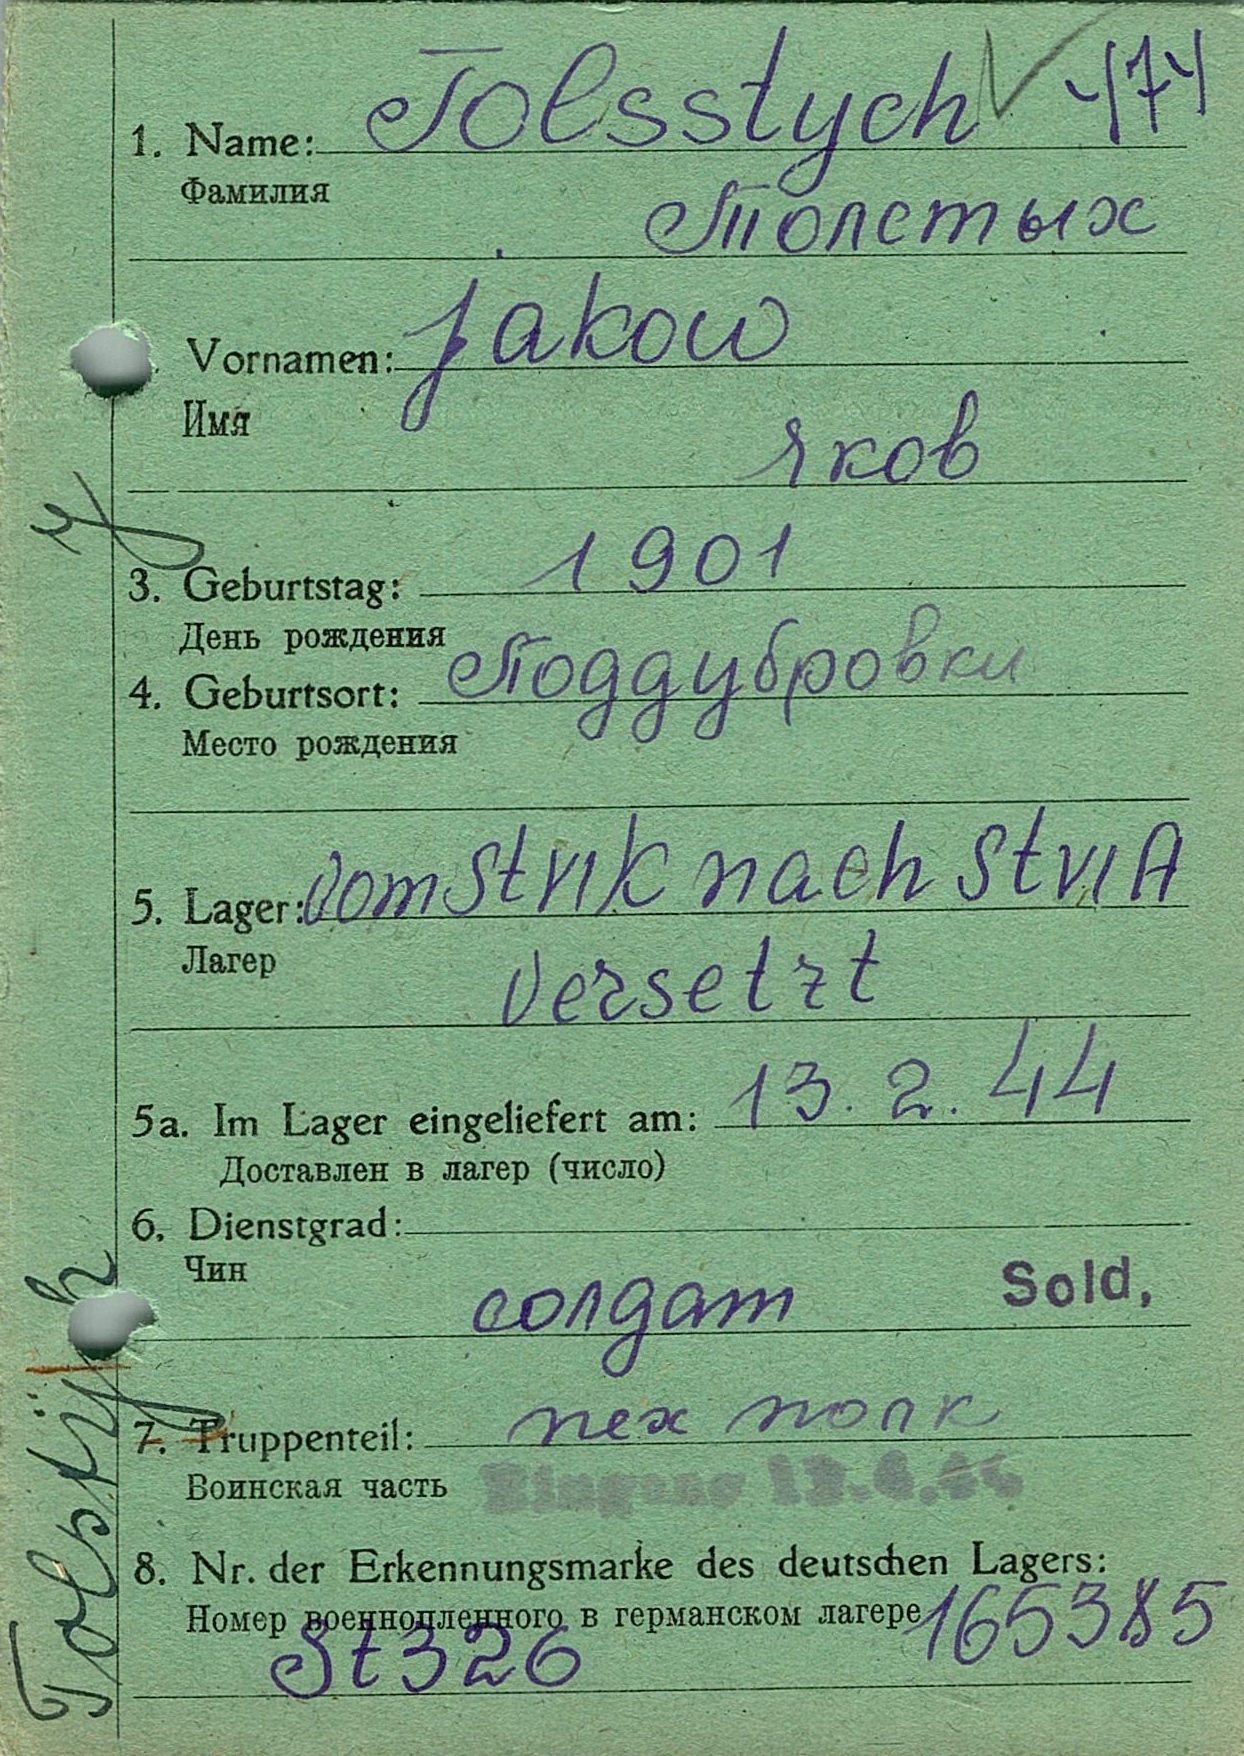 474
1. Name: Tolsstych
Фамилия
Толстых
Vornamen: Jakow
Имя
Яков
3. Geburtstag: 1901
День рождения
4. Geburtsort: Поддубровки
Место рождения
5. Lager: vom St VI K nach St VI A
Лагер
versetzt
5a. Im Lager eingeliefert am: 13. 2. 44
Доставлен в лагер (число)
6. Dienstgrad:
Чин
солдат Sold.
7. Truppenteil: пех полк
Воинская часть
8. Nr. der Erkennungsmarke des deutschen Lagers:
Номер военнопленного в германском лагере 165385
St 326
Tolstijh